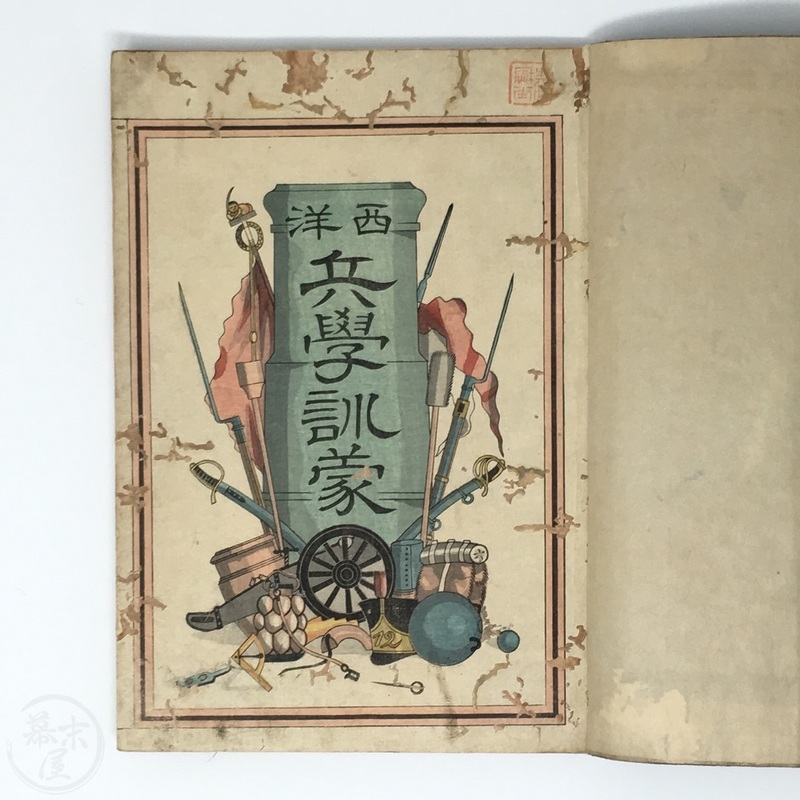 西洋
兵學訓蒙
72
幕末屋